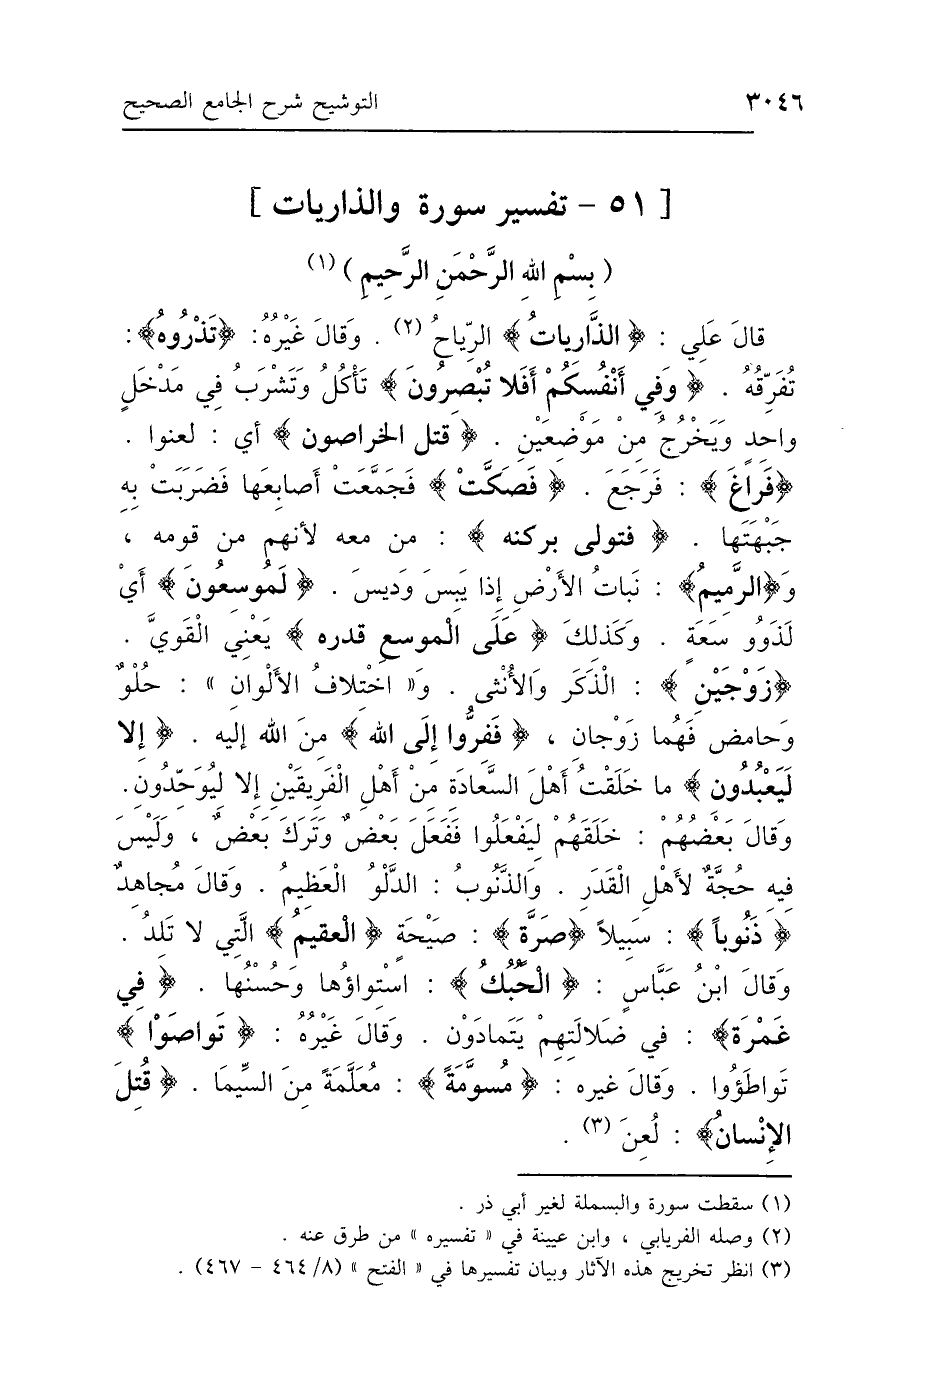 ٣٠٤٦ التوشيح شرح الجامع الصحيح
[ ٥١ - تفسير سورة والذاريات ]
( بِسْمِ اللهِ الرَّحْمَنِ الرَّحِيمِ ) (١)
قالَ عَلي : ﴿ الذَّارياتُ ﴾ الرِّياحُ (٢) . وَقالَ غَيْرُهُ: ﴿تَذْرُوهُ﴾:
تُفَرِّقُهُ . ﴿ وَفي أَنْفُسِكُمْ أَفَلا تُبْصِرُونَ ﴾ تَأْكُلُ وَتَشْرَبُ فِي مَدْخَلٍ
واحِدٍ وَيَخْرُجُ مِنْ مَوْضِعَيْنِ . ﴿ قتل الخراصون ﴾ أي : لعنوا .
﴿فَرَاغَ ﴾ : فَرَجَعَ . ﴿ فَصَكَّتْ ﴾ فَجَمَّعَتْ أصابِعَها فَضَرَبَتْ بِهِ
جَبْهَتَها . ﴿ فتولى بركنه ﴾ : من معه لأنهم من قومه ،
وَ﴿الرَّمِيمُ﴾ : نَباتُ الأَرْضِ إذا يَبِسَ وَدِيسَ . ﴿ لَمُوسِعُونَ ﴾ أَيْ
لَذَوُو سَعَةٍ . وَكَذلِكَ ﴿ عَلَى الْموسِعِ قدره ﴾ يَعْنِي الْقَوِيَّ .
﴿زَوْجَيْنِ ﴾ : الْذَكَر وَالأُنْثى . وَ« اخْتِلافُ الأَلْوانِ » : حُلْوٌ
وَحامِض فَهُما زَوْجانِ ، ﴿ فَفِرُّوا إِلَى الله ﴾ مِنَ الله إليه . ﴿ إلا
لِيَعْبُدُون ﴾ ما خَلَقْتُ أهْلَ السَّعادَةِ مِنْ أهْلِ الْفَرِيقَيْنِ إلا لِيُوَحِّدُونِ.
وَقالَ بَعْضُهُمْ : خَلَقَهُمْ لِيَفْعَلُوا فَفَعَلَ بَعْضٌ وَتَرَكَ بَعْضٌ ، وَلَيْسَ
فِيهِ حُجَّةٌ لأهْلِ الْقَدَرِ . وَالذَّنُوبُ : الدَّلْوُ الْعَظِيمُ . وَقالَ مُجاهِدٌ
﴿ ذَنُوباً ﴾ : سَبِيلاً ﴿صَرَّة ﴾ : صَيْحَةٍ ﴿ الْعقيمُ ﴾ الَّتِي لا تَلِدُ .
وَقالَ ابْنُ عَبَّاسٍ : ﴿ الْحُبُكُ ﴾ : اسْتِواؤُها وَحُسْنُها . ﴿ في
غَمْرَة﴾ : في ضَلالَتِهِمْ يَتَمادَوْن . وَقالَ غَيْرُهُ : ﴿ تَواصَوْا ﴾
تَواطَؤُوا . وَقالَ غيره : ﴿ مُسوَّمَةً ﴾ : مُعَلَّمَةً مِنَ السِّيمَا . ﴿ قُتِلَ
الإنْسانُ﴾ : لُعِنَ (٣) .
(١) سقطت سورة والبسملة لغير أبي ذر .
(٢) وصله الفريابي ، وابن عيينة في « تفسيره » من طرق عنه .
(٣) انظر تخريج هذه الآثار وبيان تفسيرها في « الفتح » (٨/ ٤٦٤ - ٤٦٧) .